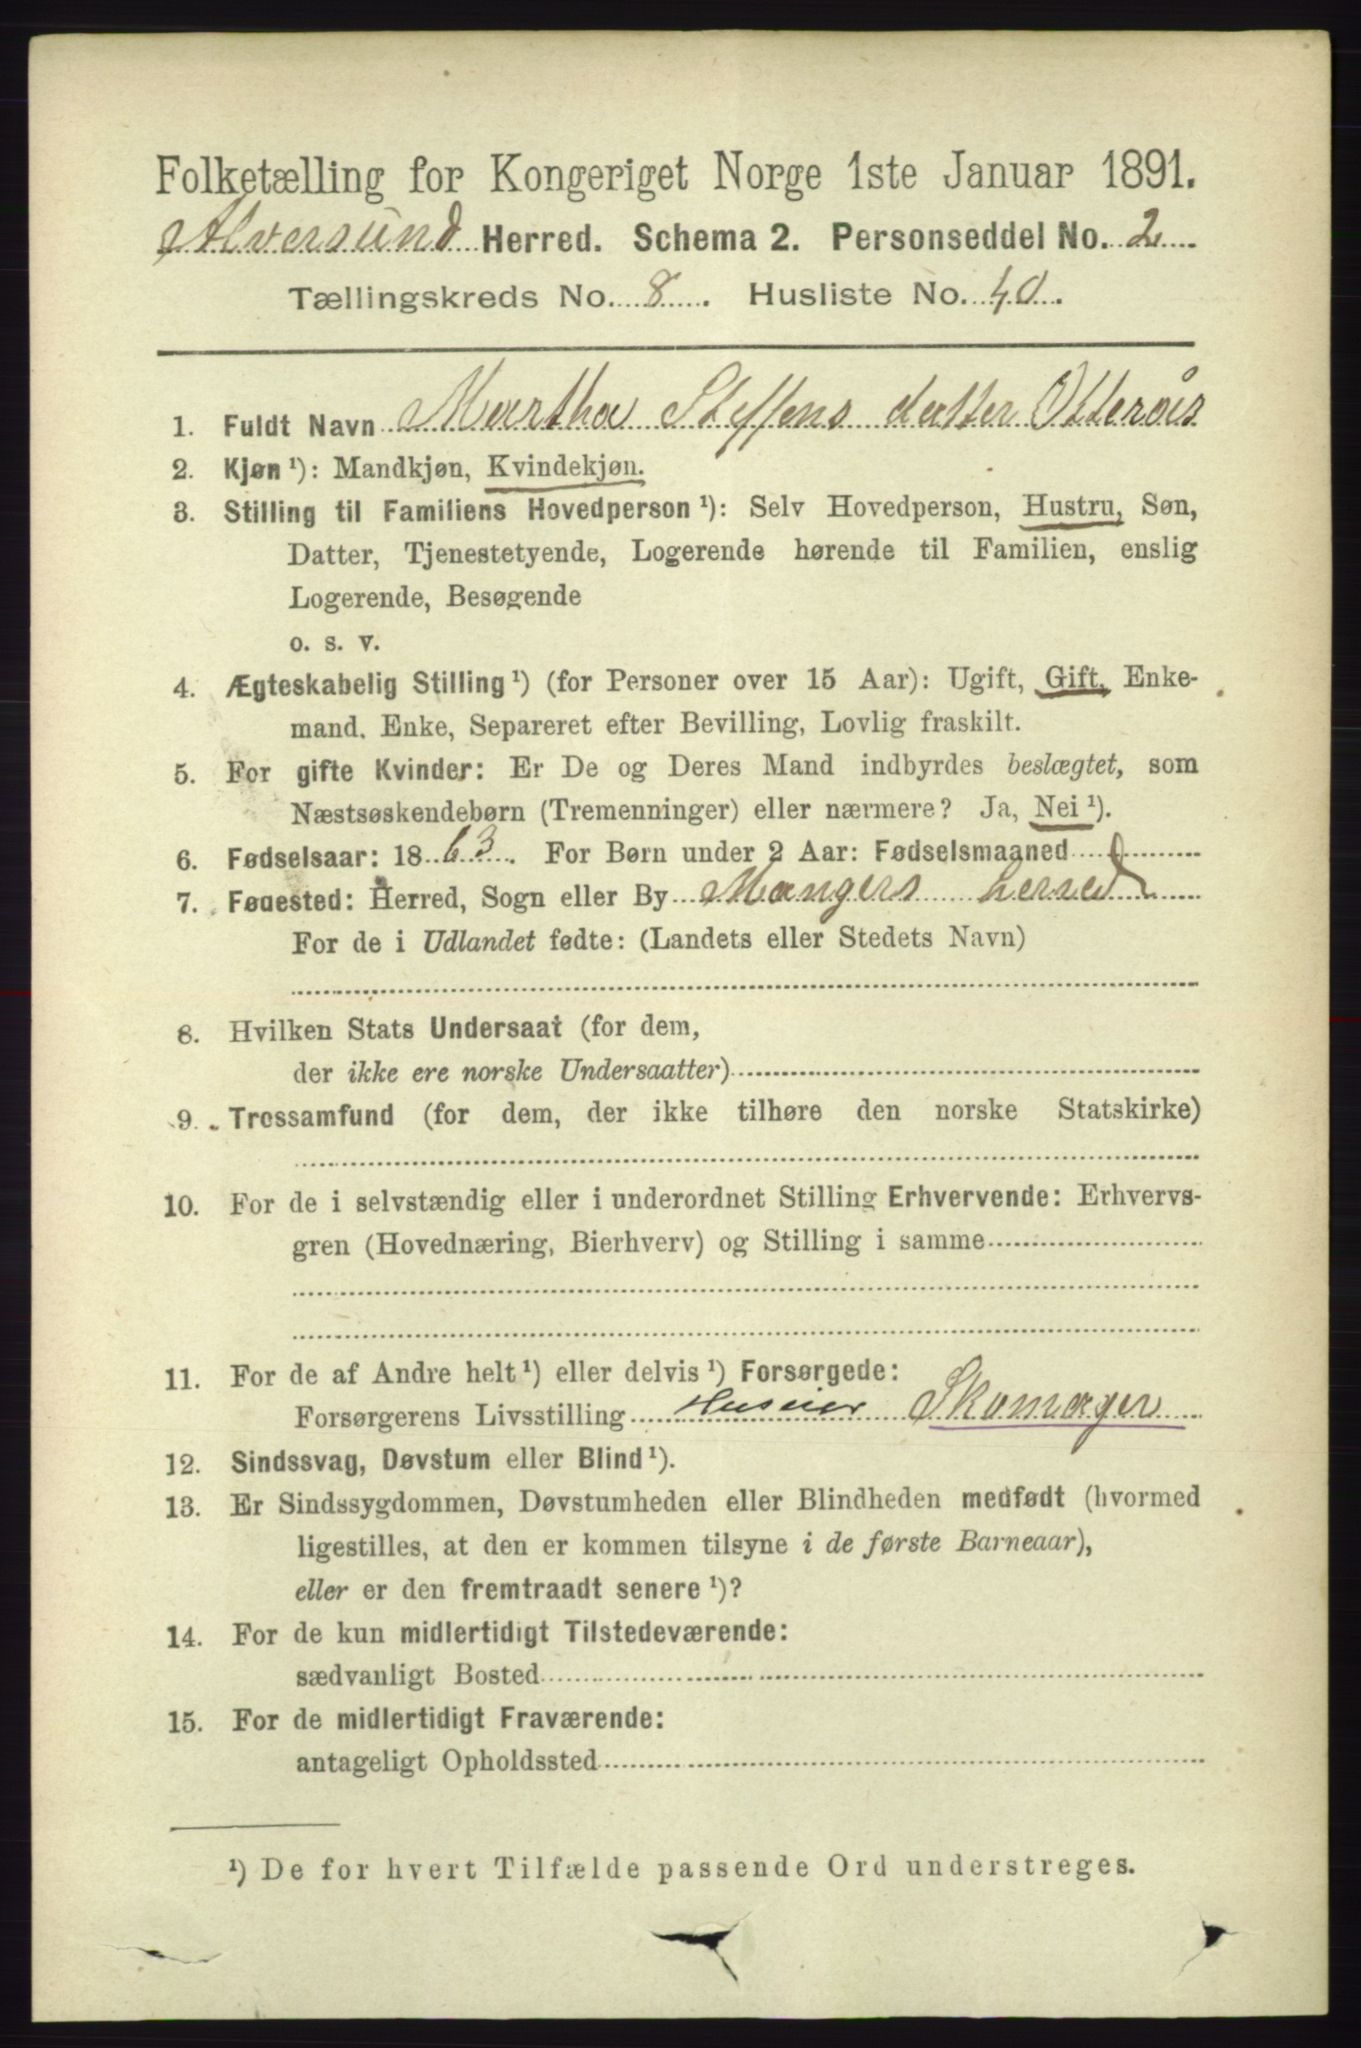 Folketælling for Kongeriget Norge 1ste Januar 1891.
Alversund Herred. Schema 2. Personseddel No. 2
Tællingskreds No. 8. Husliste No. 40.
1. Fuldt Navn Martha Steffens datter Otterøis
2. Kjøn ¹): Mandkjøn, Kvindekjøn.
3. Stilling til Familiens Hovedperson ¹): Selv Hovedperson, Hustru, Søn,
Datter, Tjenestetyende, Logerende hørende til Familien, enslig
Logerende, Besøgende
o. s. v.
4. Ægteskabelig Stilling ¹) (for Personer over 15 Aar): Ugift, Gift, Enke-
mand, Enke, Separeret efter Bevilling, Lovlig fraskilt.
5. For gifte Kvinder: Er De og Deres Mand indbyrdes beslægtet, som
Næstsøskendebørn (Tremenninger) eller nærmere? Ja, Nei ¹).
6. Fødselsaar: 1863. For Børn under 2 Aar: Fødselsmaaned
7. Fødested: Herred, Sogn eller By Mangers herred
For de i Udlandet fødte: (Landets eller Stedets Navn)
8. Hvilken Stats Undersaat (for dem,
der ikke ere norske Undersaatter)
9. Trossamfund (for dem, der ikke tilhøre den norske Statskirke)
10. For de i selvstændig eller i underordnet Stilling Erhvervende: Erhvervs-
gren (Hovednæring, Bierhverv) og Stilling i samme
11. For de af Andre helt ¹) eller delvis ¹) Forsørgede:
Forsørgerens Livsstilling Huseier Skomager
12. Sindssvag, Døvstum eller Blind ¹).
13. Er Sindssygdommen, Døvstumheden eller Blindheden medfødt (hvormed
ligestilles, at den er kommen tilsyne i de første Barneaar),
eller er den fremtraadt senere ¹)?
14. For de kun midlertidigt Tilstedeværende:
sædvanligt Bosted
15. For de midlertidigt Fraværende:
antageligt Opholdssted
¹) De for hvert Tilfælde passende Ord understreges.